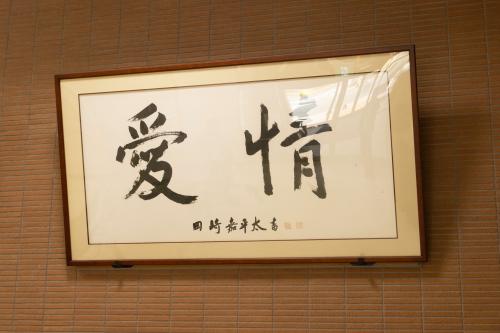 愛情
田崎嘉平太書